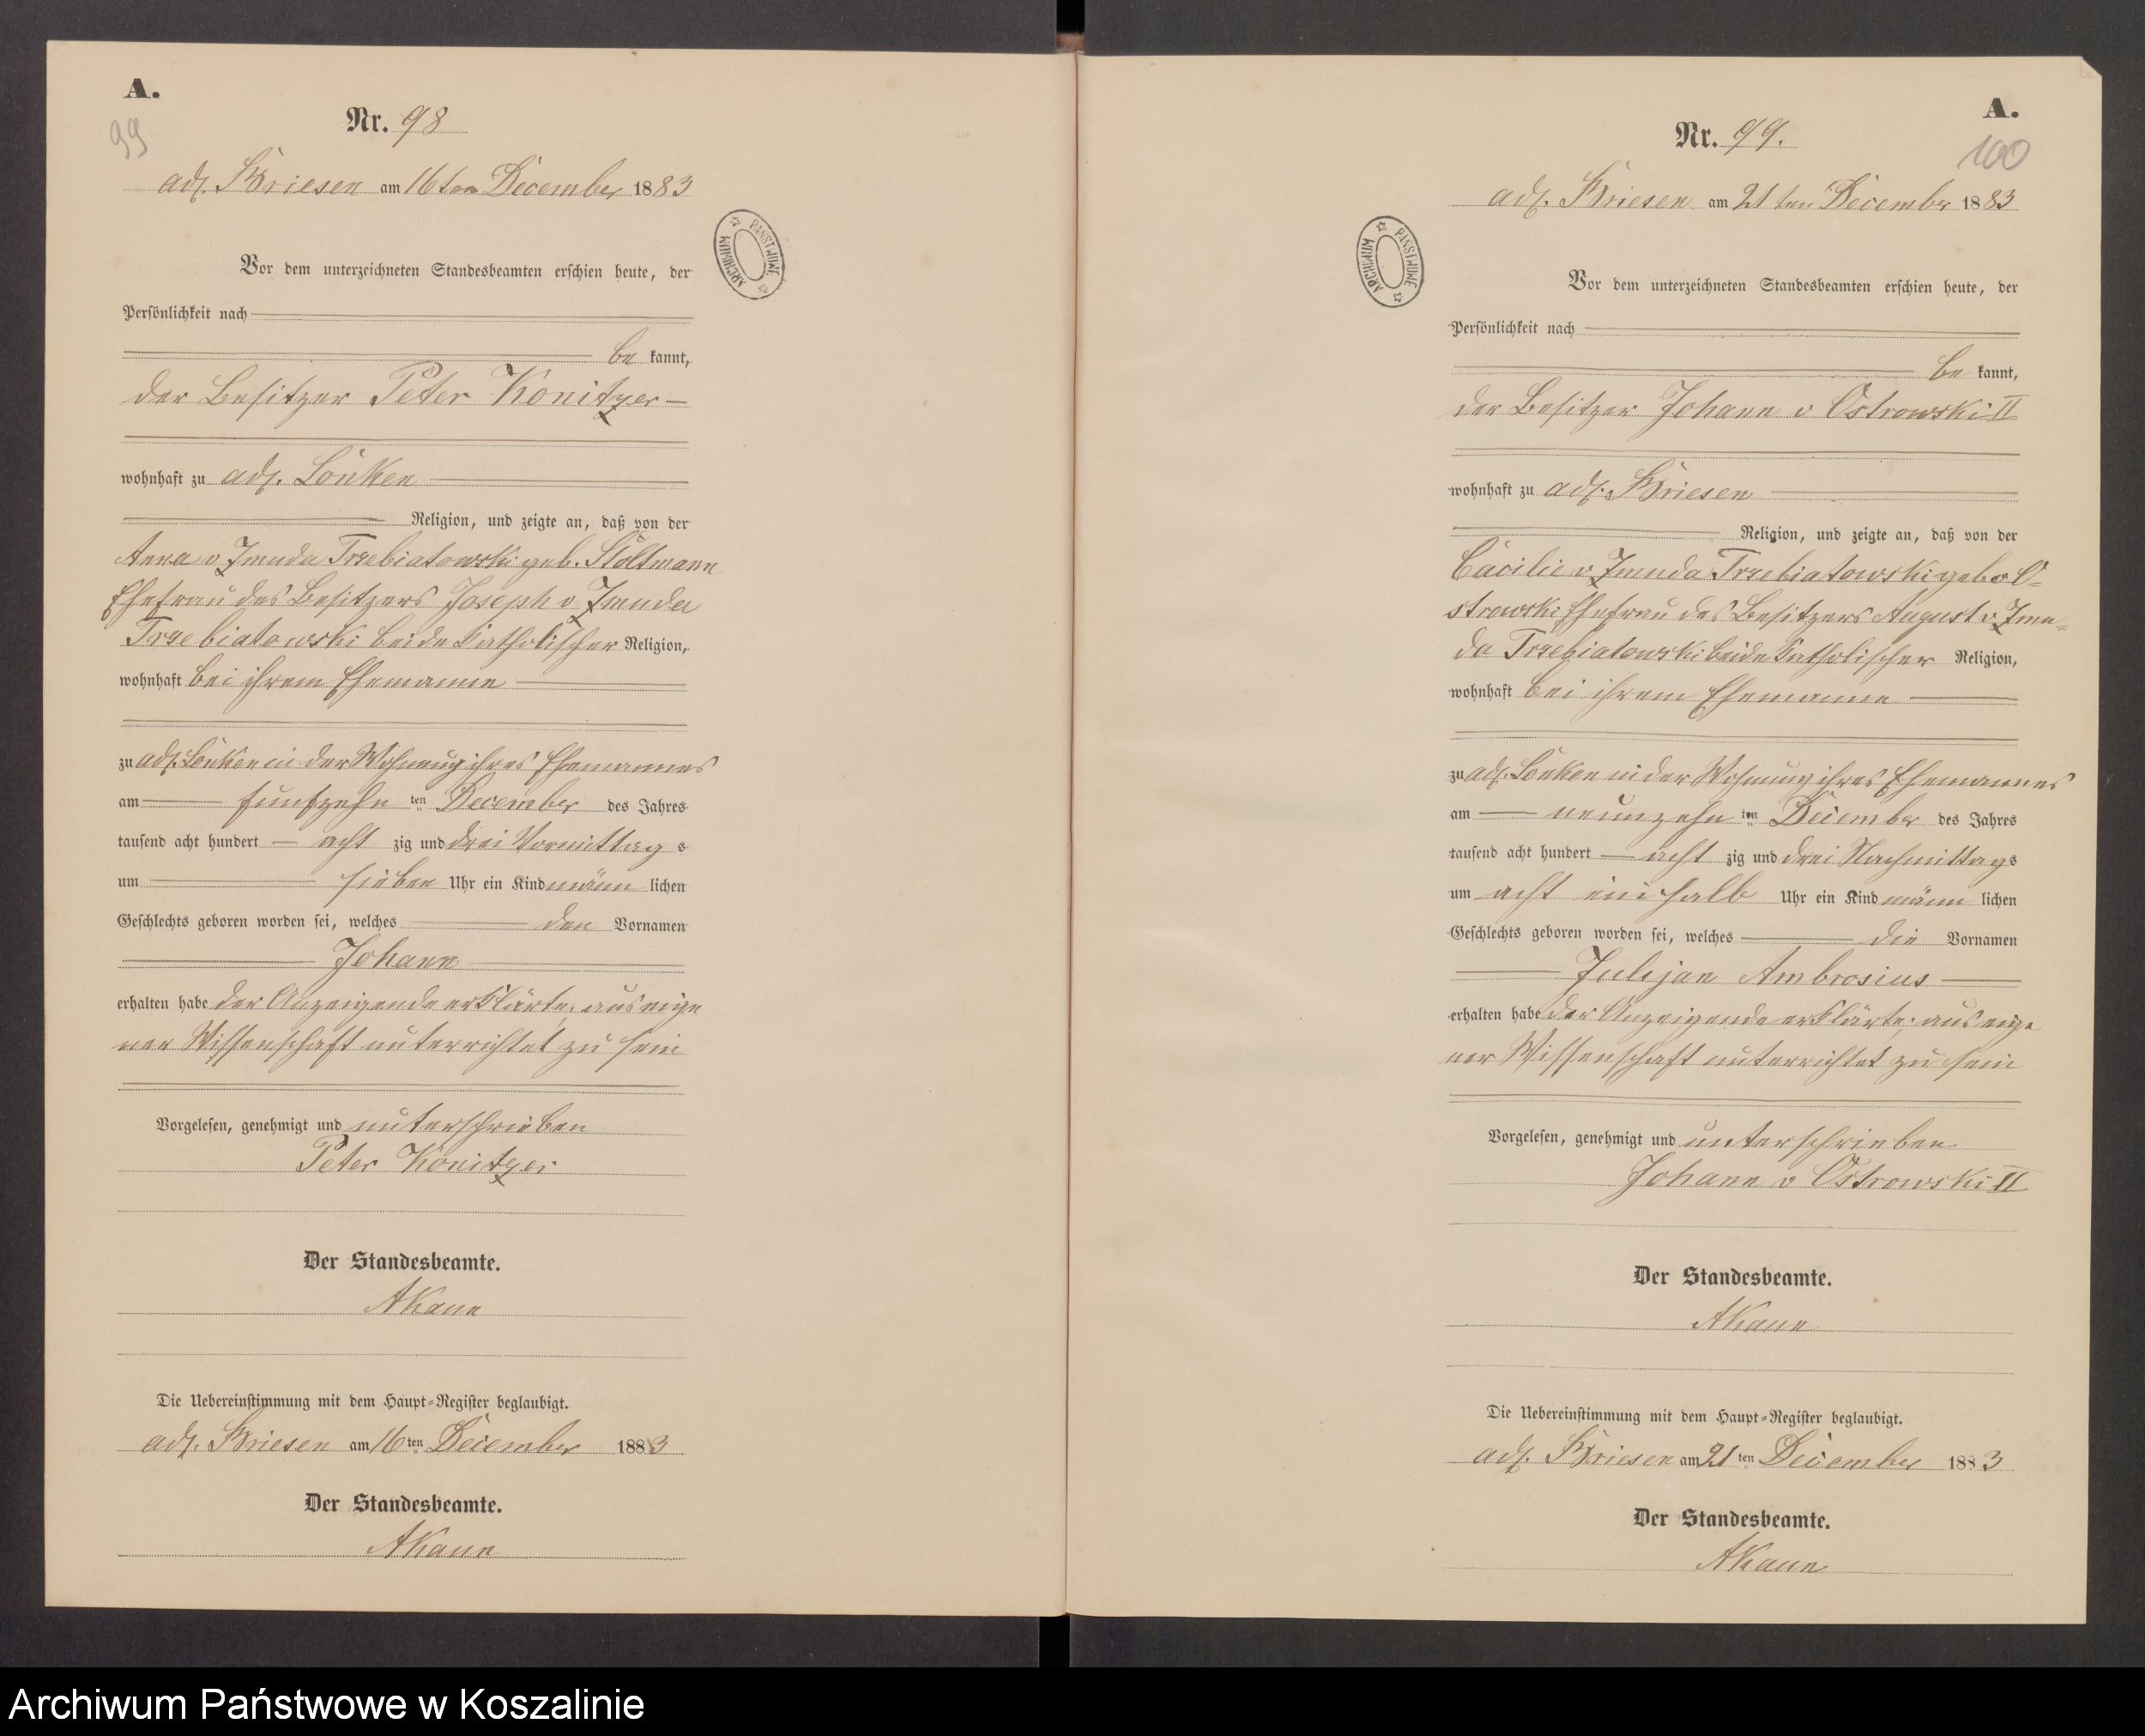 A.
99
Nr. 98
adl. Briesen am 16ten December 1883
PAŃSTWOWE ARCHIWUM
Vor dem unterzeichneten Standesbeamten erschien heute, der
Persönlichkeit nach
be kannt,
der Besitzer Peter Konitzer
wohnhaft zu adl. Lonken
Religion, und zeigte an, daß von der
Anna v Zmuda Trzebiatowski geb. Stoltmann
Ehefrau des Besitzers Joseph v Zmuda
Trzebiatowski beide katholischer Religion,
wohnhaft bei ihrem Ehemanne
zu adl. Lonken in der Wohnung ihres Ehemannes
am fünfzehn ten December des Jahres
tausend acht hundert acht zig und drei Vormittag s
um sieben Uhr ein Kind männ lichen
Geschlechts geboren worden sei, welches den Vornamen
Johann
erhalten habe der Anzeigende erklärte, aus eige
ner Wissenschaft unterrichtet zu sein
Vorgelesen, genehmigt und unterschrieben
Peter Konitzer
Der Standesbeamte.
AKaun
Die Uebereinstimmung mit dem Haupt-Register beglaubigt.
adl. Briesen am 16 ten December 1883
Der Standesbeamte.
AKaun
A.
100
Nr. 99.
adl. Briesen am 21ten December 1883
PAŃSTWOWE ARCHIWUM
Vor dem unterzeichneten Standesbeamten erschien heute, der
Persönlichkeit nach
be kannt,
der Besitzer Johann v Ostrowski II
wohnhaft zu adl. Briesen
Religion, und zeigte an, daß von der
Cäcilie v Zmuda Trzebiatowski geb v O=
strowski Ehefrau des Besitzers August v Zmu=
da Trzebiatowski beide katholischer Religion,
wohnhaft bei ihrem Ehemanne
zu adl. Lonken in der Wohnung ihres Ehemannes
am neunzehn ten December des Jahres
tausend acht hundert acht zig und drei Nachmittags
um acht ein halb Uhr ein Kind männ lichen
Geschlechts geboren worden sei, welches die Vornamen
Julijan Ambrosius
erhalten habe der Anzeigende erklärte, aus eige
ner Wissenschaft unterrichtet zu sein
Vorgelesen, genehmigt und unterschrieben
Johann v Ostrowski II
Der Standesbeamte.
AKaun
Die Uebereinstimmung mit dem Haupt-Register beglaubigt.
adl. Briesen am 21 ten December 1883
Der Standesbeamte.
AKaun
Archiwum Państwowe w Koszalinie